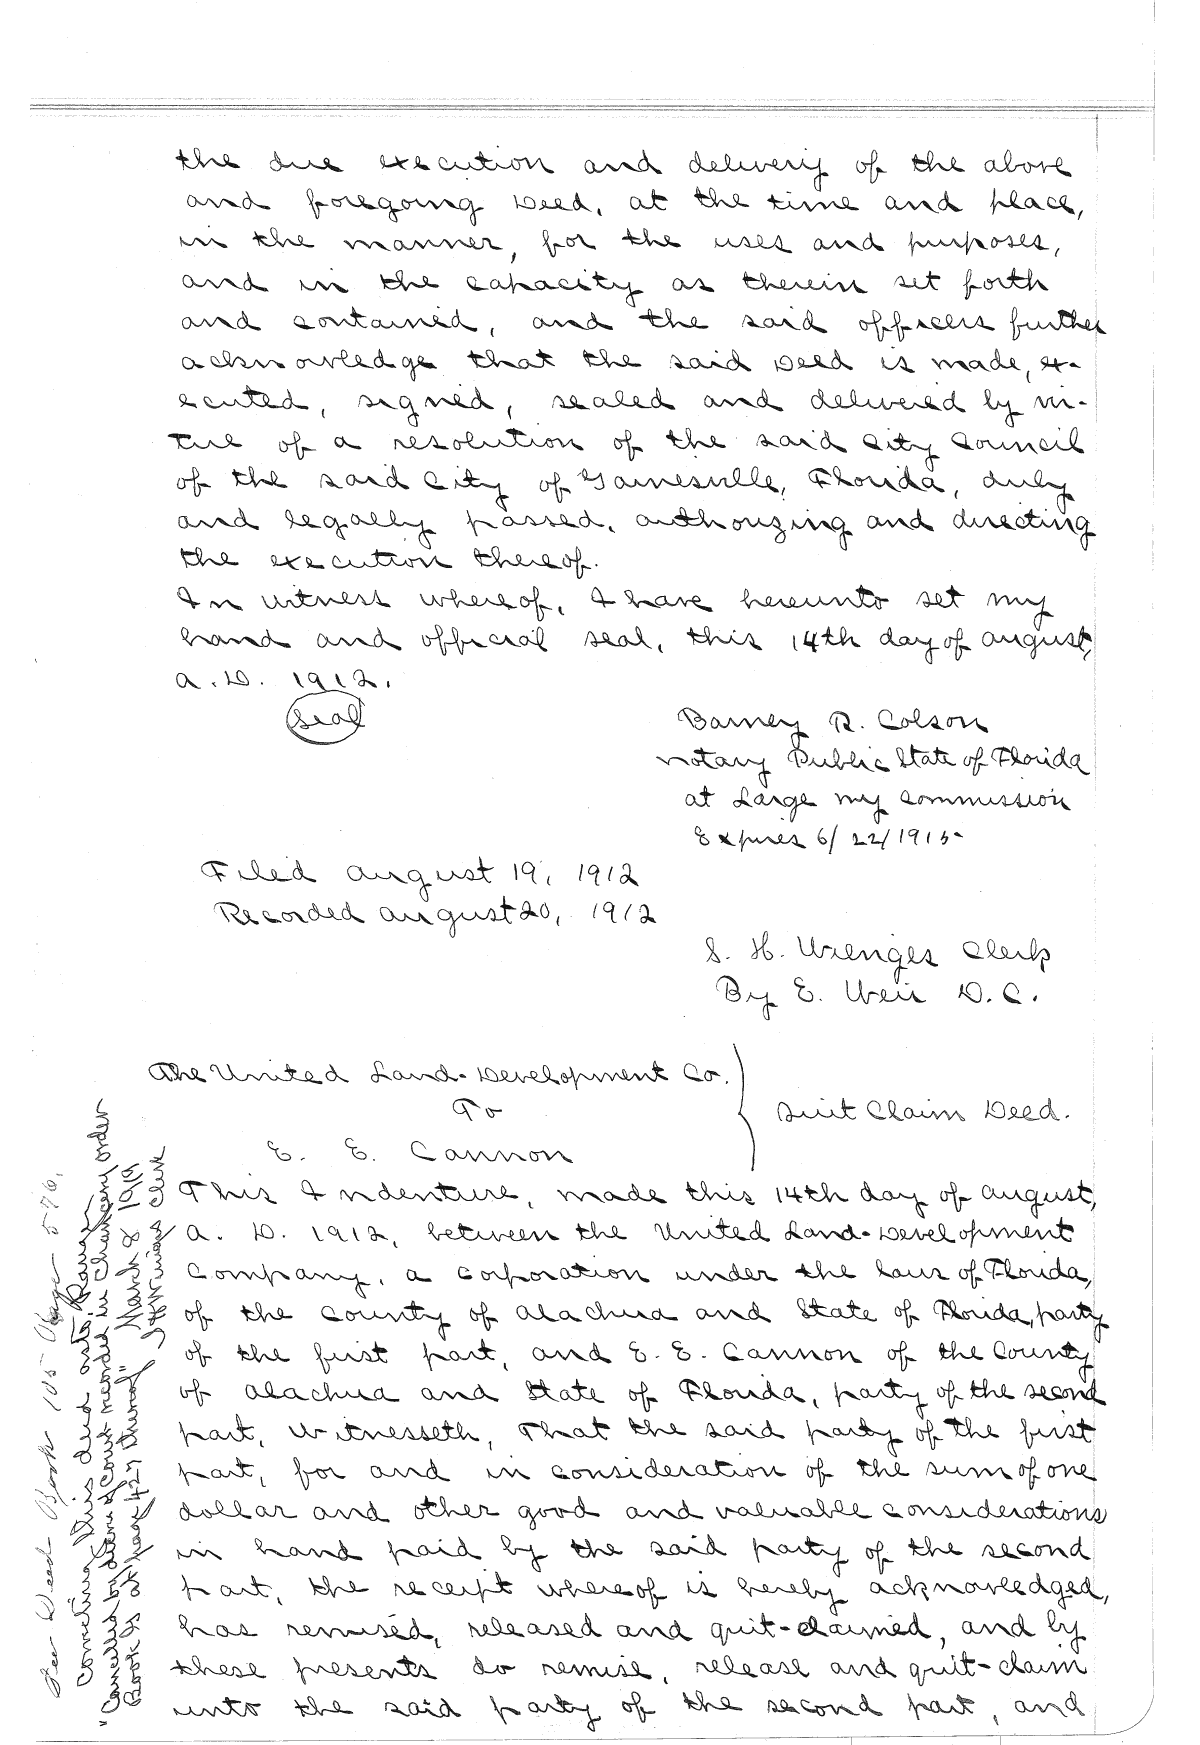 the due execution and delivery of the above
and foregoing Deed, at the time and place,
in the manner, for the uses and purposes,
and in the capacity as therein set forth
and contained, and the said officers further
acknowledge that the said Deed is made, ex-
ecuted, signed, sealed and delivered by vir-
tue of a resolution of the said City Council
of the said City of Gainesville, Florida, duly
and legally passed, authorizing and directing
the execution thereof.
In witness whereof, I have hereunto set my
hand and official seal, this 14th day of august,
a. D. 1912.
Seal
Barney R. Colson
notary Public State of Florida
at Large my commission
Expires 6/22/1915-
Filed august 19, 1912
Recorded august 20, 1912
S. H. Wienges Clerk
By E. Weir D.C.
The United Land-Development Co.
To
E. E. Cannon
Quit Claim Deed.
This Indenture, made this 14th day of august,
a. D. 1912, between the United Land-Development
Company, a corporation under the laws of Florida,
of the County of Alachua and State of Florida, party
of the first part, and E. E. Cannon of the County
of Alachua and State of Florida, party of the second
part, Witnesseth, That the said party of the first
part, for and in consideration of the sum of one
dollar and other good and valuable considerations
in hand paid by the said party of the second
part, the receipt whereof is hereby acknowledged,
has remised, released and quit-claimed, and by
these presents do remise, release and quit-claim
unto the said party of the second part, and
See Deed Book 105 Page 576,
Correcting this deed
"Cancelled by decree of Court recorded in Chancery order
Book at page 427 thereof" March 8 1919
S H Wienges Clerk